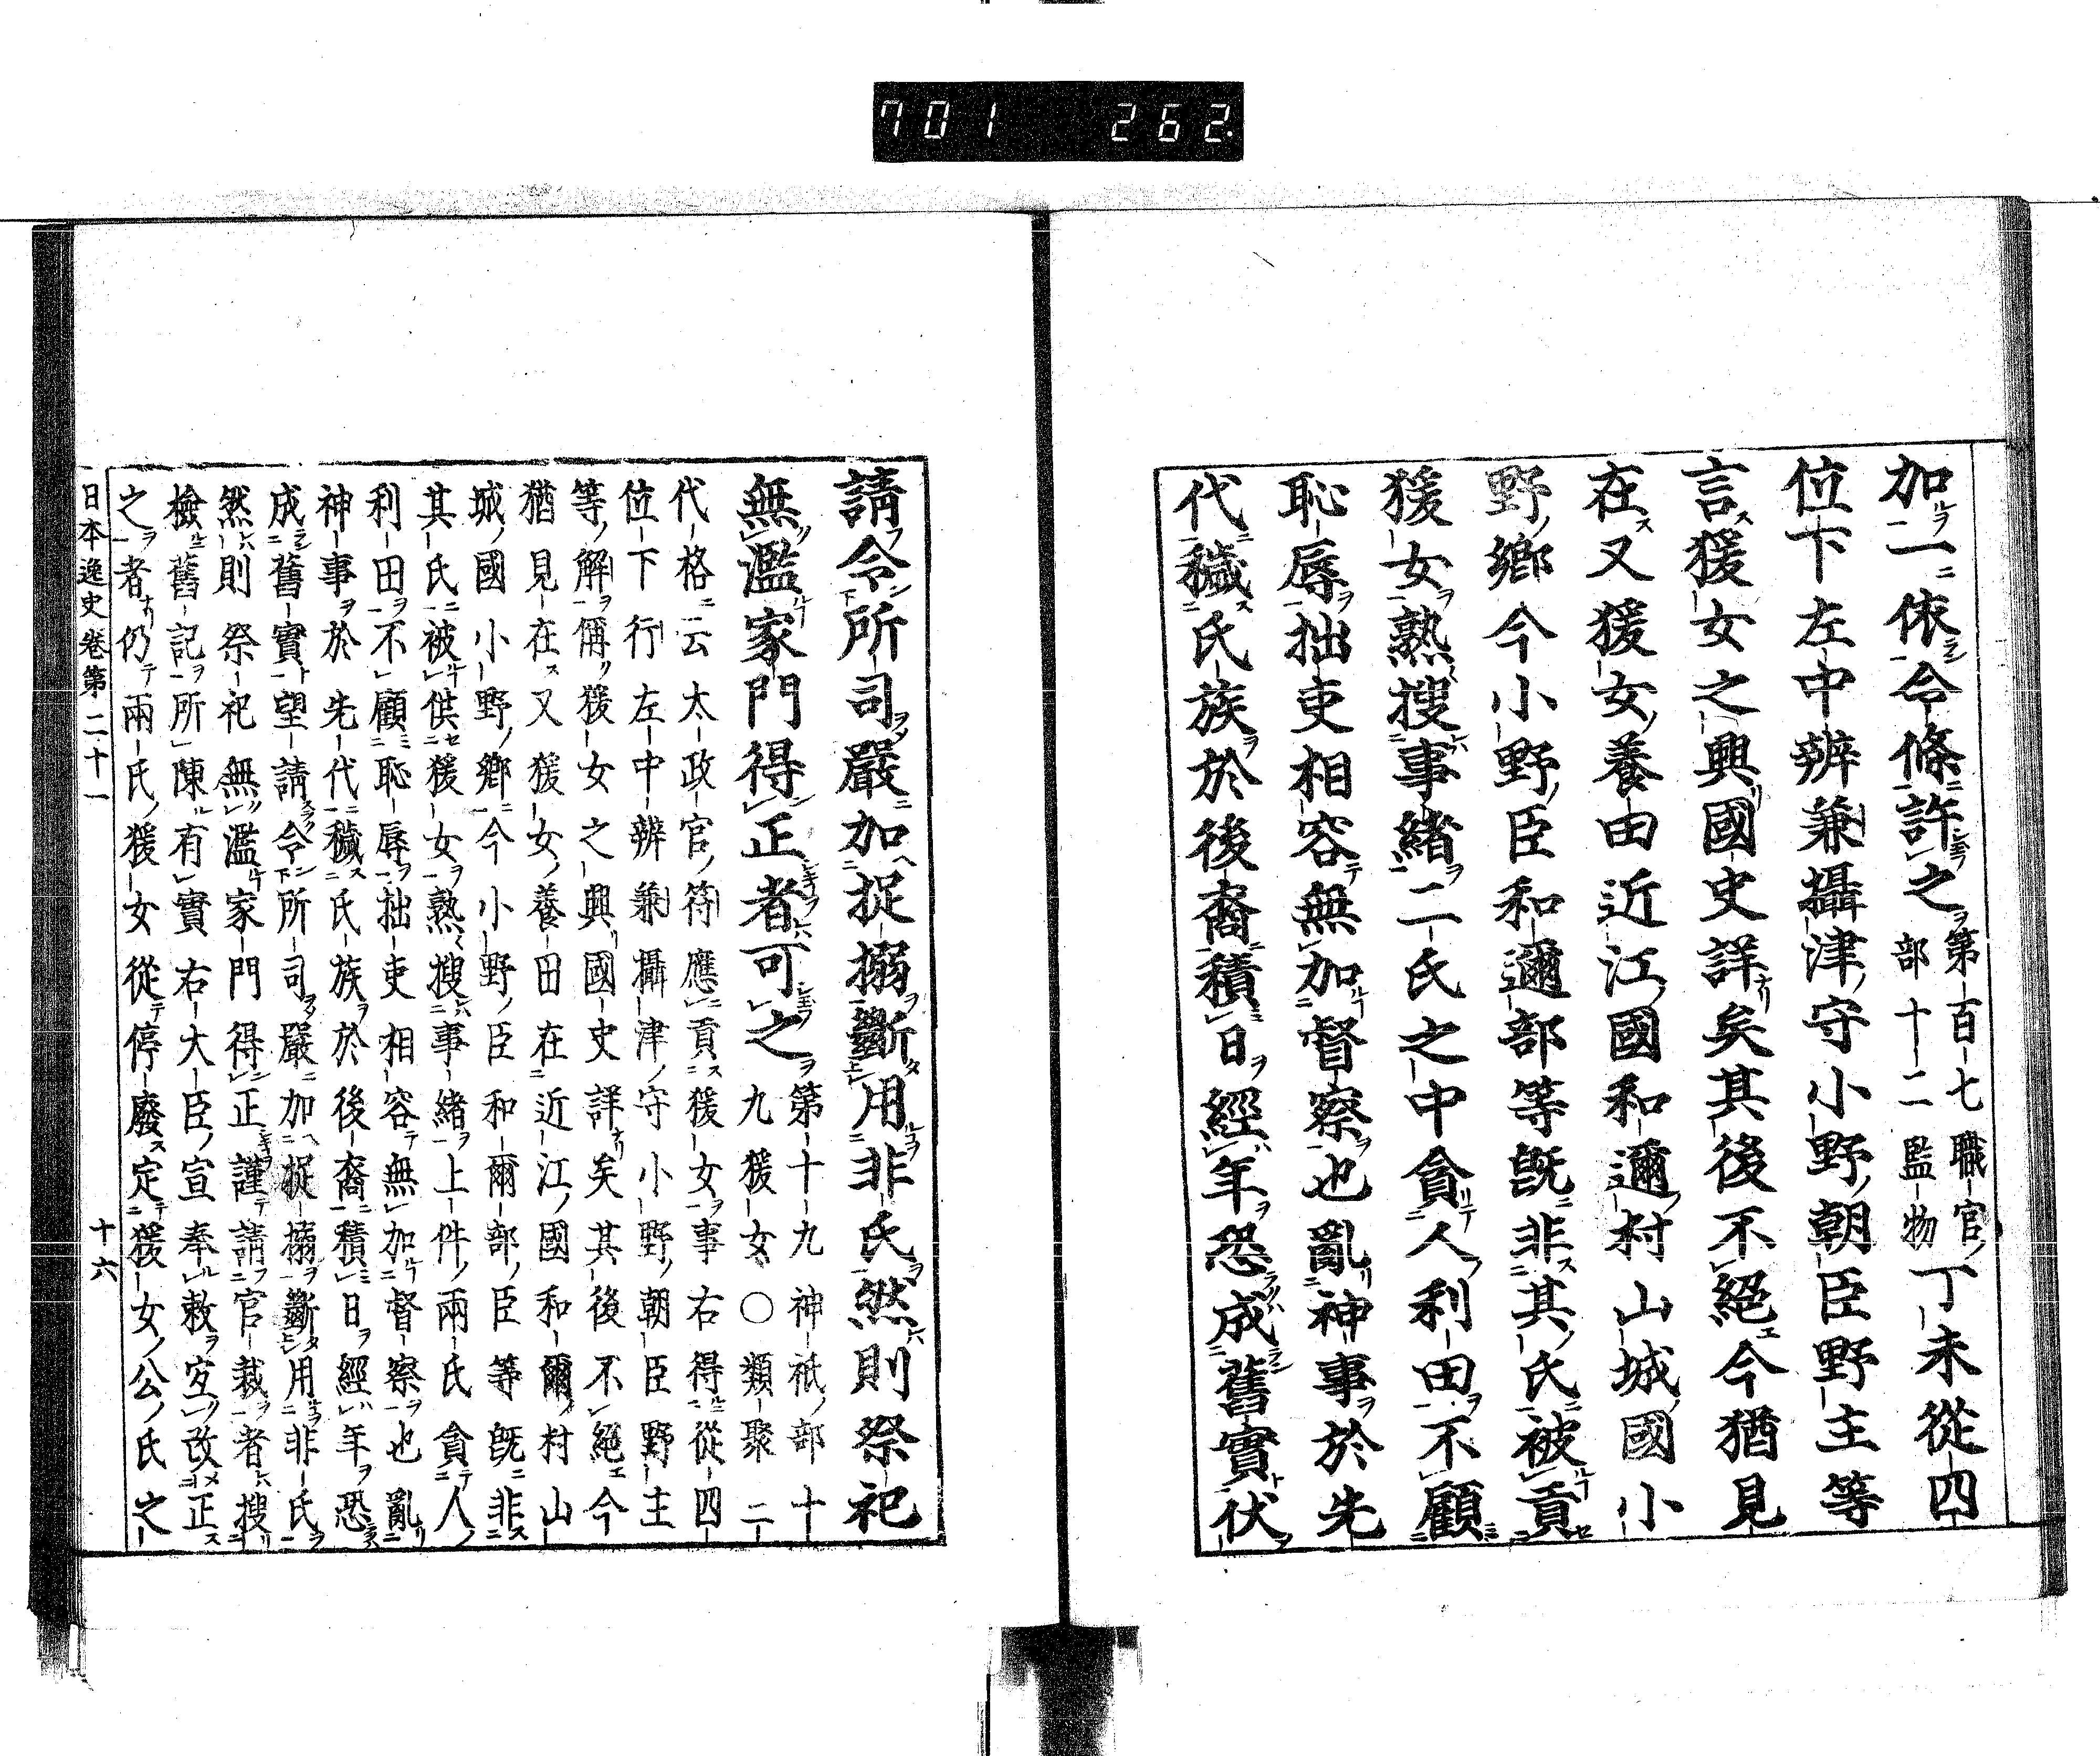 701 262.
加一依令條許之第百七職官部十二監物丁未從四
位下左中辨兼攝津守小野朝臣野主等
言猨女之興國史詳矣其後不絕今猶見
在又猨女養田近江國和邇村山城國小
野鄉今小野臣和邇部等旣非其氏被貢
猨女熟搜事緒二氏之中貪人利田不顧
恥辱拙吏相容無加督察也亂神事於先
代穢氏族於後裔積日經年恐成舊實伏
請令所司嚴加捉搦斷用非氏然則祭祀
無濫家門得正者可之第十九神祇部十九猨女○類聚二
代格云太政官符應貢猨女事右得從四
位下行左中辨兼攝津守小野朝臣野主
等解偁猨女之興國史詳矣其後不絕今
猶見在又猨女養田在近江國和爾村山
城國小野鄉今小野臣和爾部臣等旣非
其氏被供猨女熟搜事緒上件兩氏貪人
利田不顧恥辱拙吏相容無加督察也亂
神事於先代穢氏族於後裔積日經年恐
成舊實望請令所司嚴加捉搦斷用非氏
然則祭祀無濫家門得正謹請官裁者搜
檢舊記所陳有實右大臣宣奉敕宜改正
之者仍兩氏猨女從停廢定猨女公氏之
日本逸史卷第二十一 十六